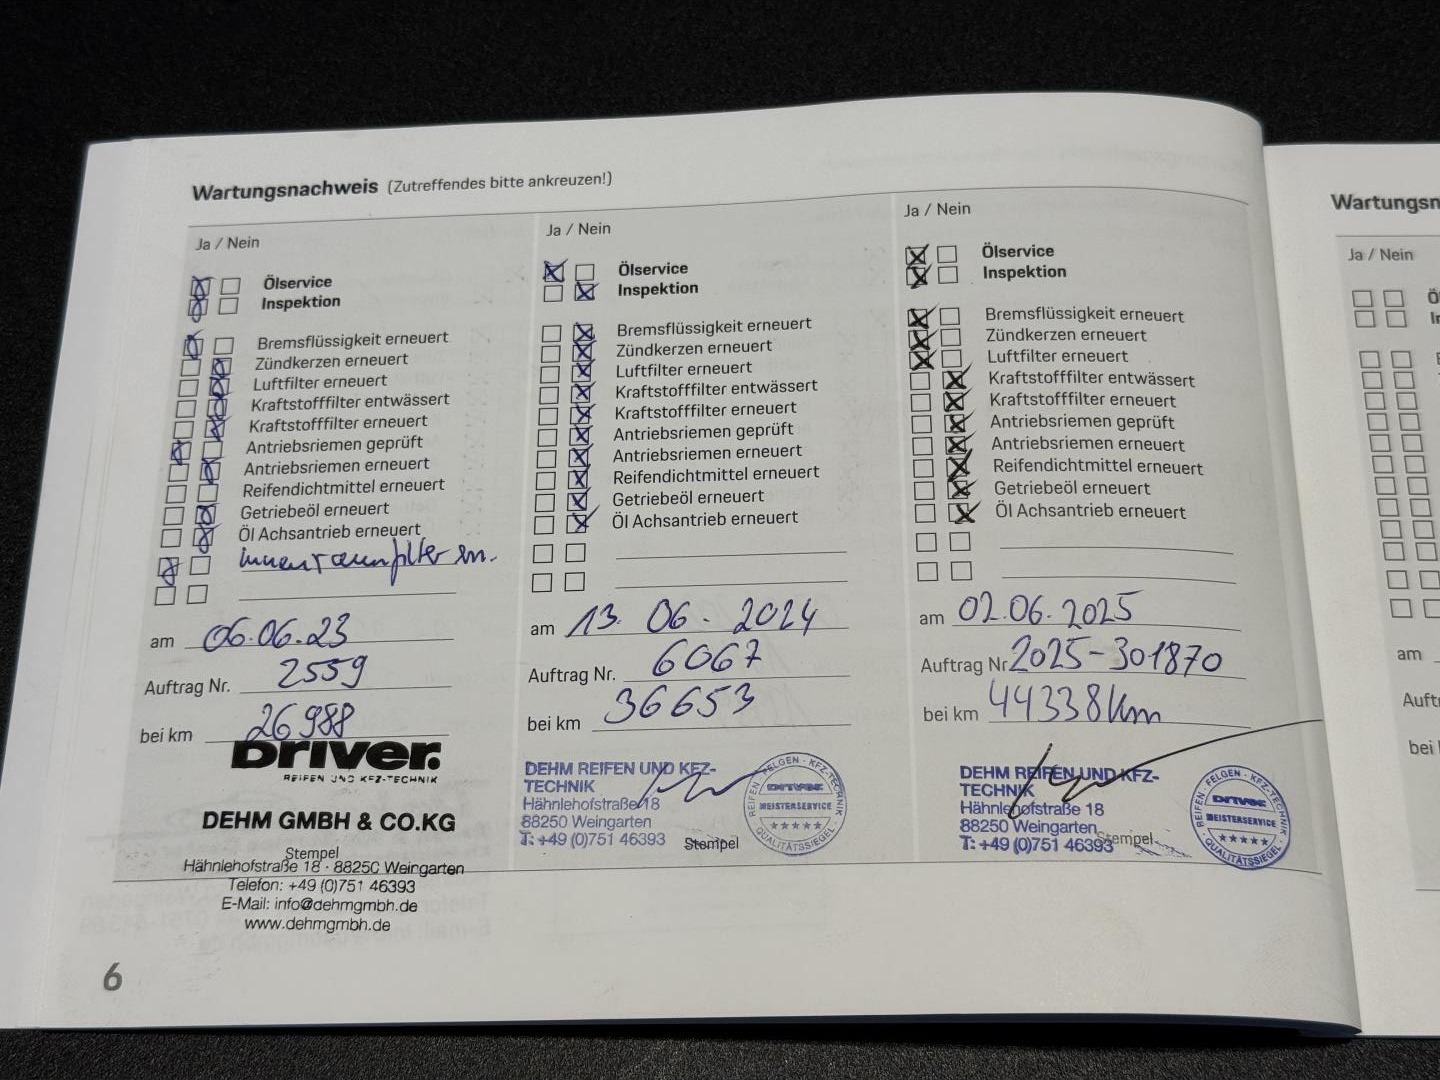 Wartungsnachweis (Zutreffendes bitte ankreuzen!)
Ja / Nein
Ölservice
Inspektion
Bremsflüssigkeit erneuert
Zündkerzen erneuert
Luftfilter erneuert
Kraftstofffilter entwässert
Kraftstofffilter erneuert
Antriebsriemen geprüft
Antriebsriemen erneuert
Reifendichtmittel erneuert
Getriebeöl erneuert
Öl Achsantrieb erneuert
Innenraumfilter ern.
am 06.06.23
Auftrag Nr. 2559
bei km 26988
DRIVER.
REIFEN UND KFZ-TECHNIK
DEHM GMBH & CO.KG
Stempel
Hähnlehofstraße 18 · 88250 Weingarten
Telefon: +49 (0)751 46393
E-Mail: info@dehmgmbh.de
www.dehmgmbh.de
6
Ja / Nein
Ölservice
Inspektion
Bremsflüssigkeit erneuert
Zündkerzen erneuert
Luftfilter erneuert
Kraftstofffilter entwässert
Kraftstofffilter erneuert
Antriebsriemen geprüft
Antriebsriemen erneuert
Reifendichtmittel erneuert
Getriebeöl erneuert
Öl Achsantrieb erneuert
am 13.06.2024
Auftrag Nr. 6067
bei km 36653
DEHM REIFEN UND KFZ-
TECHNIK
Hähnlehofstraße 18
88250 Weingarten
T: +49 (0)751 46393
Stempel
REIFEN · FELGEN · KFZ-TECHNIK
DRIVER
MEISTERSERVICE
QUALITÄTSSIEGEL
Ja / Nein
Ölservice
Inspektion
Bremsflüssigkeit erneuert
Zündkerzen erneuert
Luftfilter erneuert
Kraftstofffilter entwässert
Kraftstofffilter erneuert
Antriebsriemen geprüft
Antriebsriemen erneuert
Reifendichtmittel erneuert
Getriebeöl erneuert
Öl Achsantrieb erneuert
am 02.06.2025
Auftrag Nr. 2025-301870
bei km 44338km
DEHM REIFEN UND KFZ-
TECHNIK
Hähnlehofstraße 18
88250 Weingarten
T: +49 (0)751 46393
Stempel
REIFEN · FELGEN · KFZ-TECHNIK
DRIVER
MEISTERSERVICE
QUALITÄTSSIEGEL
Wartungsn
Ja / Nein
am
Auftr
bei